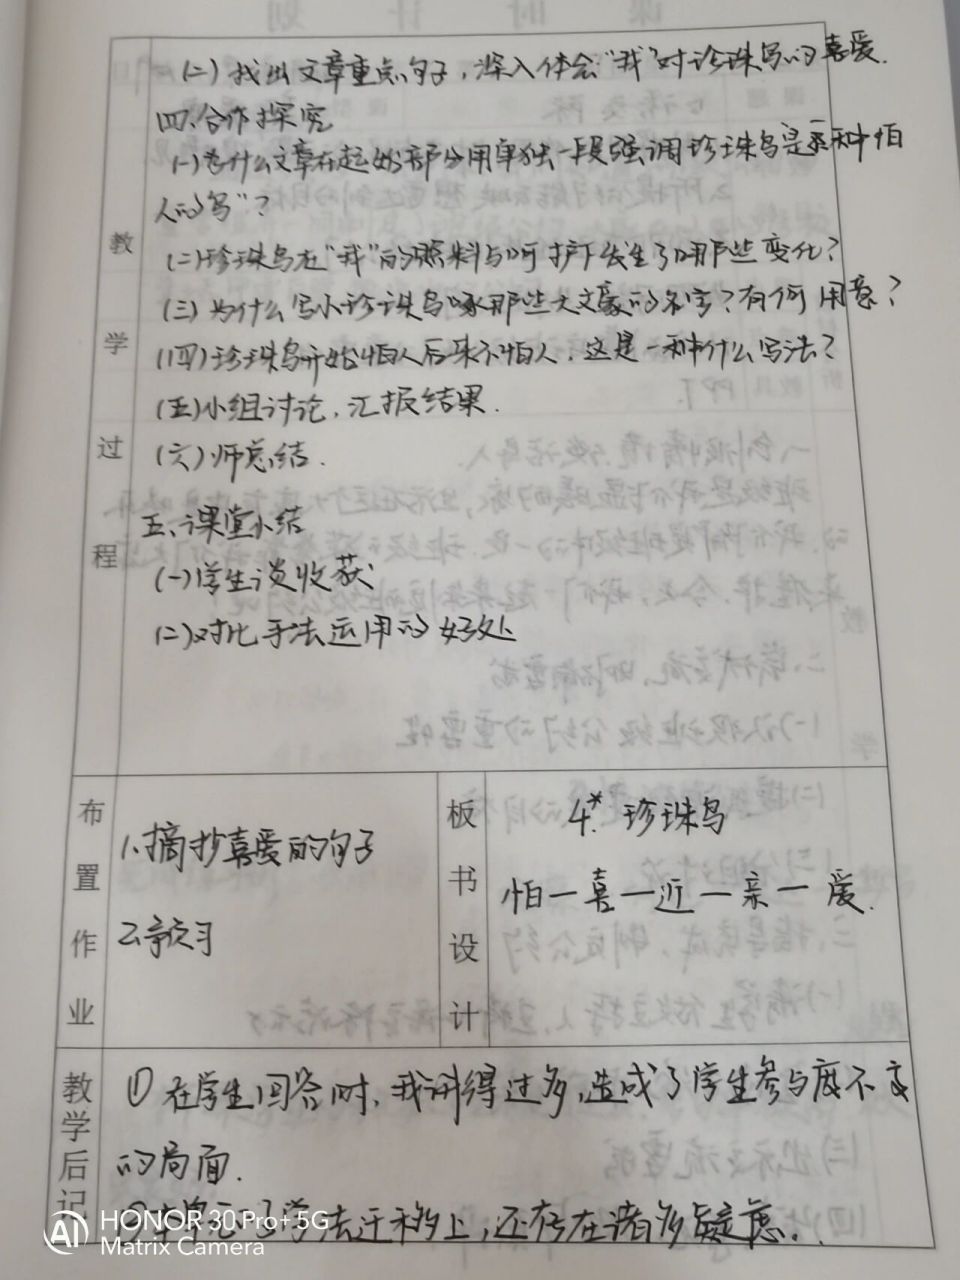 (二)找出文章重点句子,深入体会"我"对珍珠鸟的喜爱.
四、合作探究
(一)为什么文章在起始部分用单独一段强调珍珠鸟是一种怕
人的鸟"?
(二)珍珠鸟在"我"的照料与呵护下发生了哪些变化?
(三)为什么写小珍珠鸟啄那些大文豪的名字?有何用意?
(四)珍珠鸟开始怕人后来不怕人,这是一种什么写法?
(五)小组讨论,汇报结果.
(六)师总结.
五、课堂小结
(一)学生谈收获
(二)对比手法运用的好处
教学过程
布置作业
1.摘抄喜爱的句子
2.预习
板书设计
4*.珍珠鸟
怕一喜一近一亲一爱.
教学后记
① 在学生回答时,我讲得过多,造成了学生参与度不高
的局面.
单元 学法迁移上,还存在诸多疑虑.
HONOR 30 Pro+ 5G
Matrix Camera